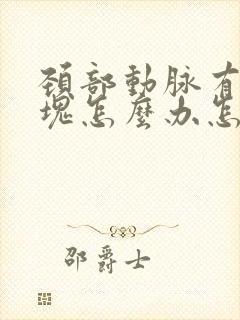 頸部動脉有
塊怎麼办怎
邵爵士